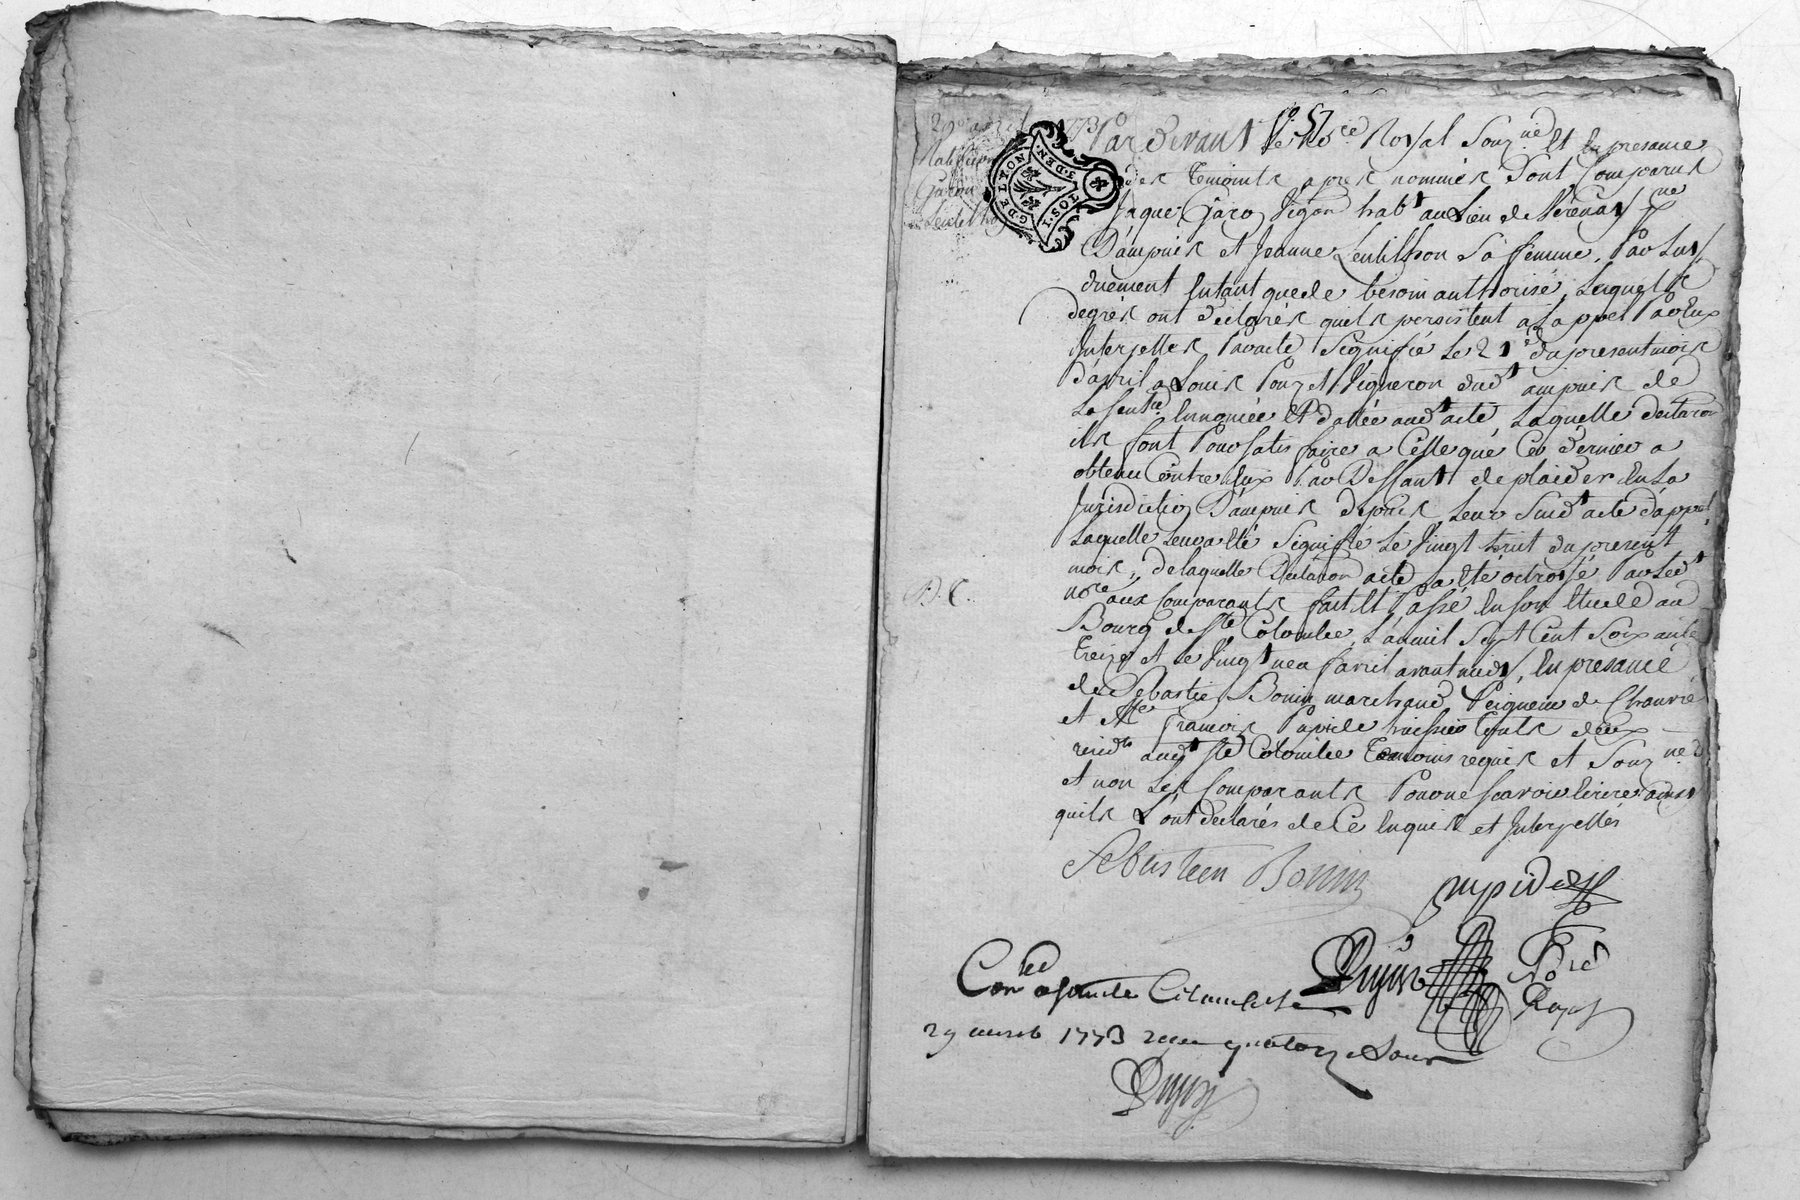 29 avril 1773
Ratification
Garon
Lentilhon
G. DE LYON
1. SOL. 3. DEN.
57
Par devant le No.re Royal Souz.né Et En presance
des temoints apres nommés Sont Comparus
Jaque Garon Vigon habt au Lieu de Verenay
D'ampuis et Jeanne Lentilhon Sa femme, Par Luy
duement Entant que de besoin authorisé, Lesquels
degrés ont declarés quels persistent a L'appel Par Eux
Interjettes Par acte Signifié Le 21e du present mois
d'avril a Louis Pouzet Vigneron dudt ampuis de
La Sentce Enoncée Et dattée audt acte, Laquelle declaraon
ils font Pour satisfaire a Celle que Ce dernier a
obtenu Contre Eux Par Deffaut de plaider En La
Jurisdiction D'ampuis depuis Leur Susdt acte d'appel
Laquelle Leur a Eté Signifié Le Vingt huit du present
mois, de laquelle Declaraon acte a Eté octroyé Par Ledt
nore aux Comparants fait Et Passé En son Etude au
B. C.
Bourg de Ste Colombe L'an mil Sept Cent Soixante
treize et Le Vingt neuf avril avant midy, En presance
de Sebastien Bonin marchand Peigneur de Chanvre
et Me Francois Papide huissier touts deux
residts audt Ste Colombe temoins requis et Souz.nés
et non Les Comparants Pour ne scavoir Ecrire ainsi
quils L'ont declarés de Ce Enquis et Interpellés
Sebastien Bonin
papide
Dujon
Nore
Royal
Conlé a Sainte Colombe Le
29 avril 1773 recu quatorze sous
Dujon